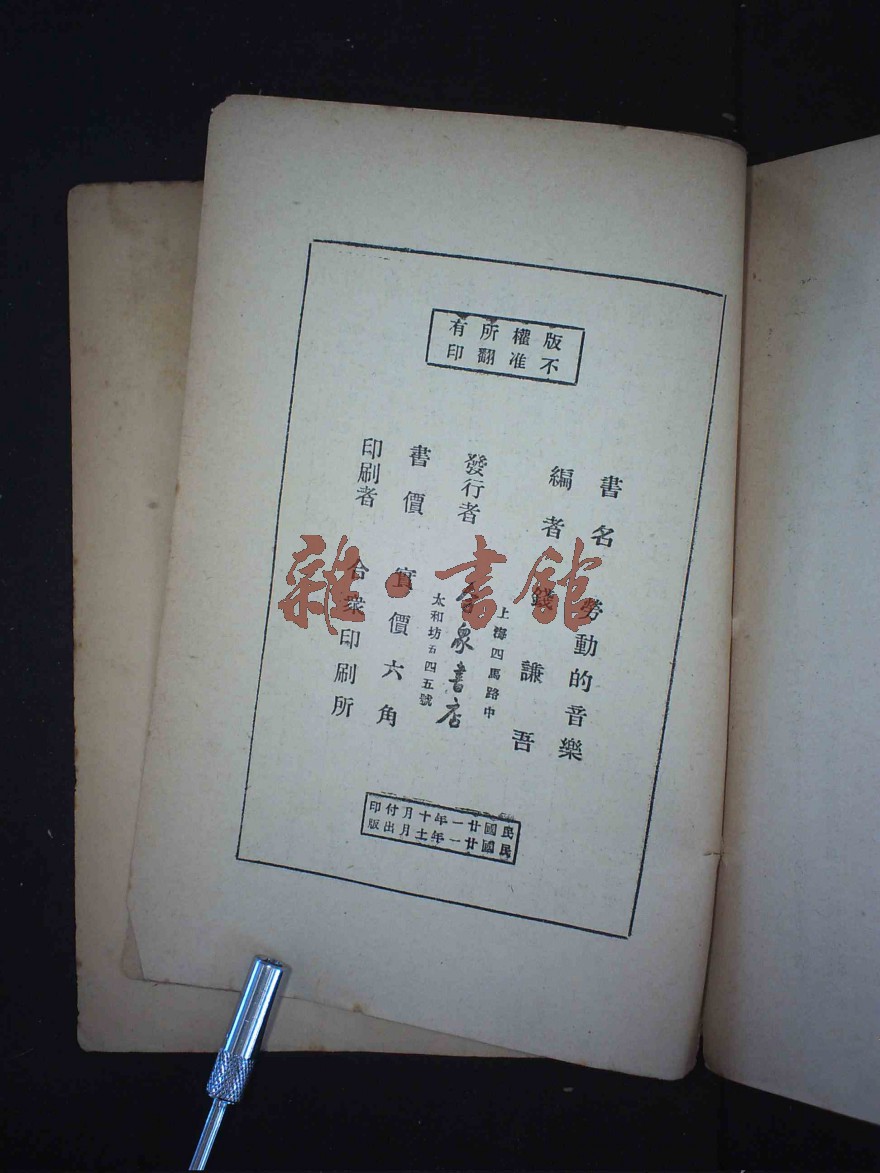 版權所有
不准翻印
書名 勞動的音樂
編者 錢謙吾
發行者
上海四馬路中
合衆書店
太和坊五四五號
書價 實價六角
印刷者 合衆印刷所
民國廿一年十月付印
民國廿一年十一月出版
雜·書館